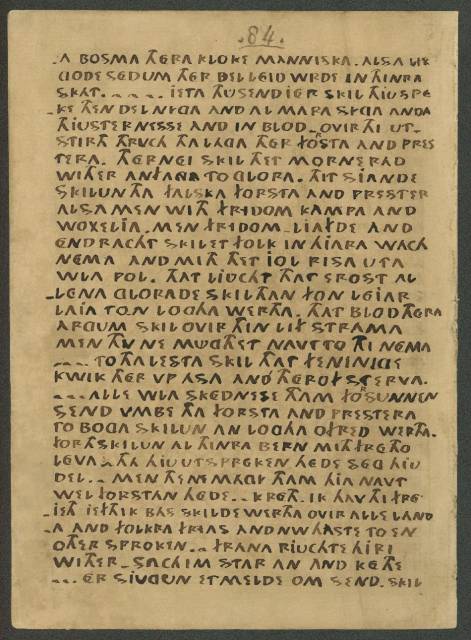 .84.
.A BOSMA THERA KLOKE MANNISKA. ALSA LIK
GODE SEDUM THER BELLEID WRDE IN THINRA
SKAT. – – – – IEFTA THUSEND IER SKIL HIU SPE
– KE THEN DEL NIGA AND AL MARA SIGA ANDA
THIUSTERNESSE AND IN BLOD – OVIR THI UT –
STIRTH THRUCH THA LAGA THER FORSTA AND PRES
TERA. THERNEI SKIL THET MORNERAD
WITHER ANFANGA TO GLORA. THIT SIANDE
SKILUN THA FALSKA FORSTA AND PRESTER
ALSAMEN WITH FRIDOM KAMPA AND
WOXELIA. MEN FRIDOM – LIAFDE AND
ENDRACHT SKIL ET FOLK IN HIARA WACH
NEMA AND MITH THET IOL RISA UTA
WLA POL. THAT LIUCHT THAT EROST AL
– LENA GLORADE SKIL THAN FON LEIAR
LAIA TO.N LOGHA WERTHA. THAT BLOD THERA
ARGUM SKIL OVIR THIN LIF STRAMA
MEN THU NE MUGTH ET NAVT TO THI NEMA
– – – TO THA LESTA SKIL THAT FENINIGE
KWIK THER VP ASA AND THEROF STERVA.
– – – ALLE WLA SKEDNESE THAM FORSUNNEN
SEND VMBE THA FORSTA AND PRESTERA
TO BOGA SKILUN AN LOGHA OFRED WERTHA.
FORTH SKILUN AL THINRA BERN MITH FRETHO
LEVA – THA HIU UTSPREKEN HEDE SEG HIU
DEL – – MEN THENE MAGI THAM HIA NAVT
WEL FORSTAN HEDE – – KRETH. IK HAV THI FRE
IETH IEF THIK BAS SKILDE WERTHA OVIR ALLE LAND
– A AND FOLKRA FRIAS AND NW HASTE TO EN
OTHER SPROKEN. – – FRANA RIUCHTE HIRI
WITHER – SACH IM STAR AN AND KETHE
– – – ER SIUGUN ETMELDE OM SEND. SKIL